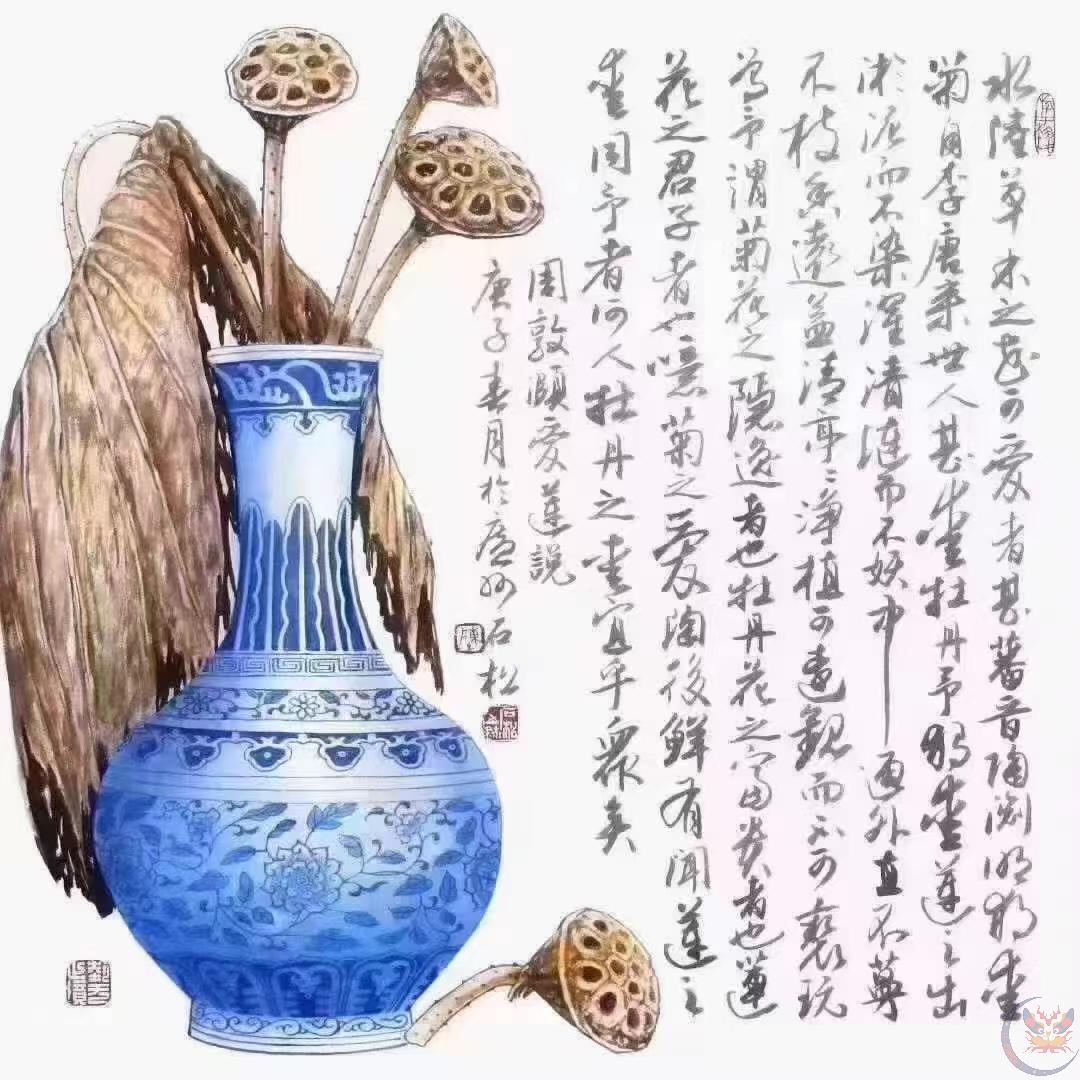 水陸草木之花可爱者甚蕃晋陶渊明独爱
菊自李唐来世人甚爱牡丹予独爱蓮之出
淤泥而不染濯清涟而不妖中通外直不蔓
不枝香遠益清亭〻净植可遠觀而不可亵玩
焉予謂菊花之隐逸者也牡丹花之富貴者也蓮
花之君子者也噫菊之爱陶後鮮有闻蓮之
爱同予者何人牡丹之爱宜乎眾矣
周敦頤爱蓮説
庚子春月於廬州石松